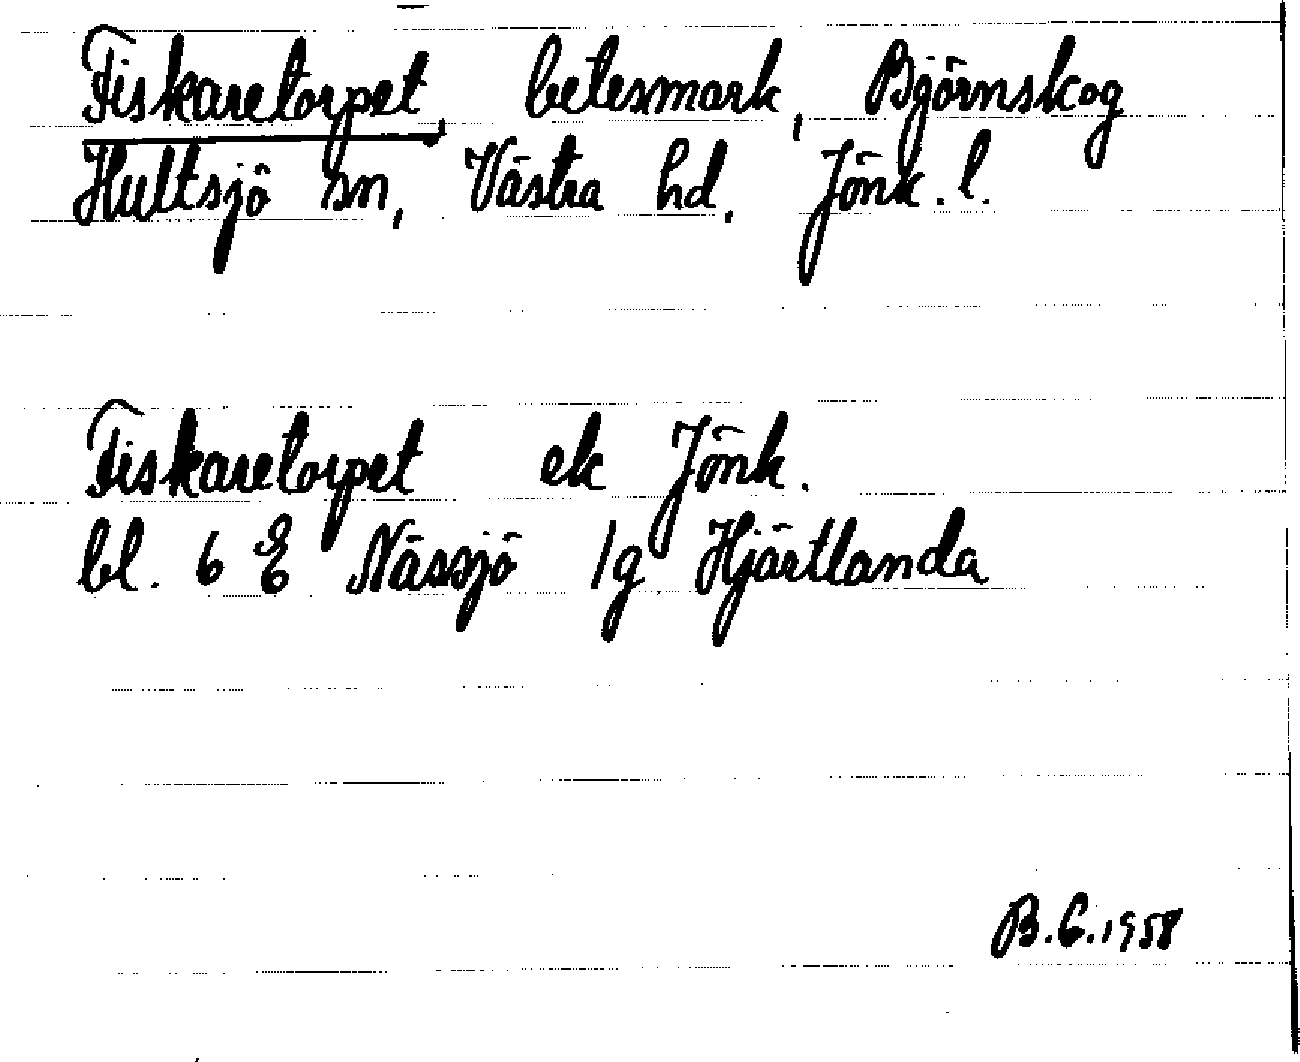 Fiskaretorpet, betesmark, Björnskog
Hultsjö sn, Västra hd, Jönk. l.
Fiskaretorpet ek Jönk.
bl. 6 E Nässjö 1g Hjärtlanda
B.E. 1958